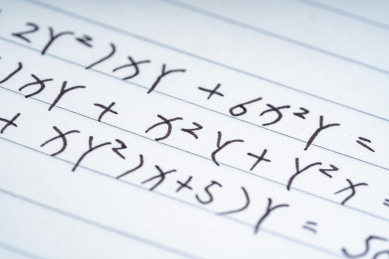 2y²)xy + 6x²y =
)xy + x²y + y²x =
+ xy²)x+5)y = 5